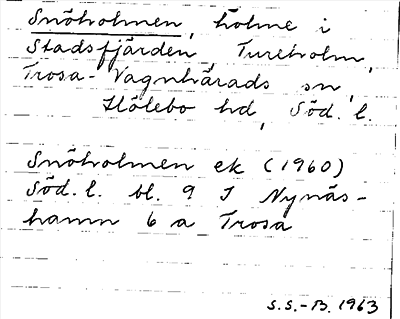 Snöholmen, holme i
Stadsfjärden, Tureholm,
Trosa-Vagnhärads sn,
Hölebo hd, Söd. l.
Snöholmen ek (1960)
Söd. l. bl. 9 I Nynäs-
hamn 6 a Trosa
S.S.-B. 1963